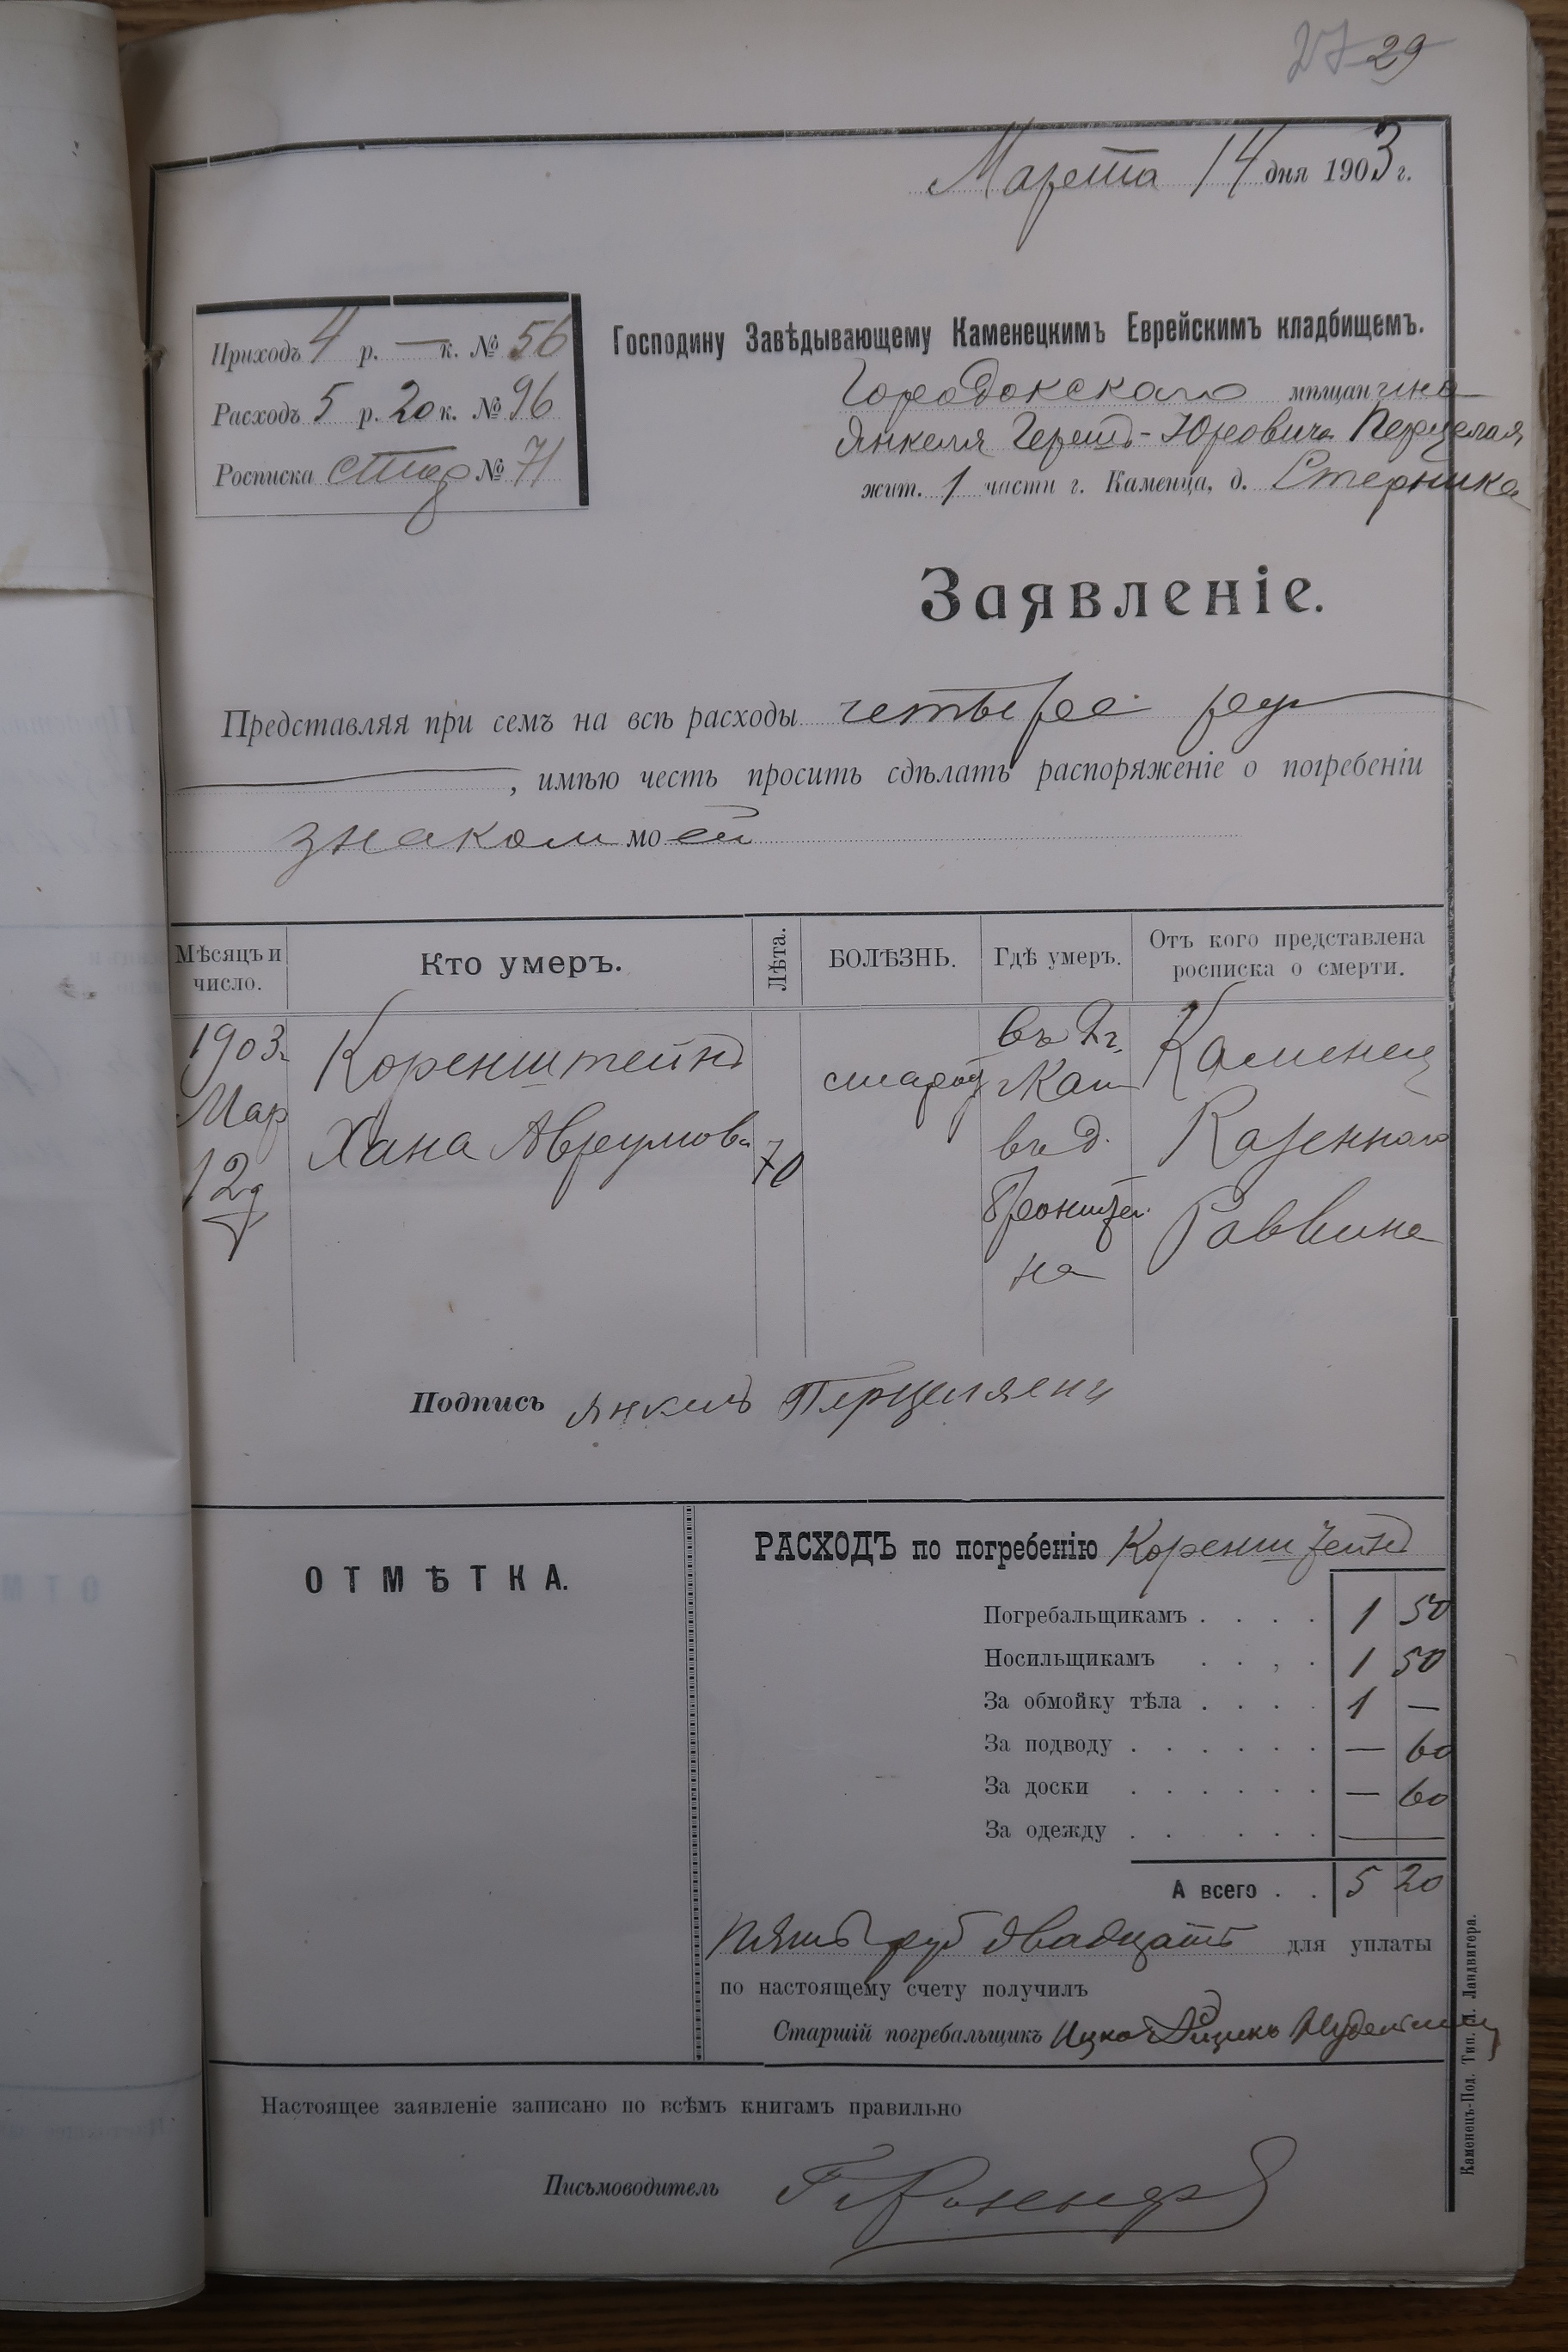 27 29
Марта 14 дня 1903 г.
Приходъ 4 р. — к. № 56
Расходъ 5 р. 20 к. № 96
Росписка стар № 71
Господину Завѣдывающему Каменецкимъ Еврейскимъ кладбищемъ.
Городокскаго мѣщанина
Янкеля Гершъ-Юровича
жит. 1 части г. Каменца, д. Стерника
Заявленіе.
Представляя при семъ на всѣ расходы четыре руб
, имѣю честь просить сдѣлать распоряженіе о погребеніи
знаком моей
Мѣсяцъ и число.
Кто умеръ.
Лѣта.
БОЛѢЗНЬ.
Гдѣ умеръ.
Отъ кого представлена росписка о смерти.
1903
Мар
12
Коренштейнъ
Хана Аврумова
70
старост
въ г.
Кам
въ д.
Бронштей
на
Каменец
Казеннаго
Раввина
Подпись Янкель
ОТМѢТКА.
РАСХОДЪ по погребенію Коренштейнъ
Погребальщикамъ . . . . 1 50
Носильщикамъ . . , . 1 50
За обмойку тѣла . . . . 1 —
За подводу . . . . . . — 60
За доски . . . . . . — 60
За одежду . . . . . . —
А всего . . 5 20
Пять руб двадцать для уплаты
по настоящему счету получилъ
Старшій погребальщикъ Ицко
Настоящее заявленіе записано по всѣмъ книгамъ правильно
Письмоводитель
Каменецъ-Под. Тип. Л. Ландвигера.